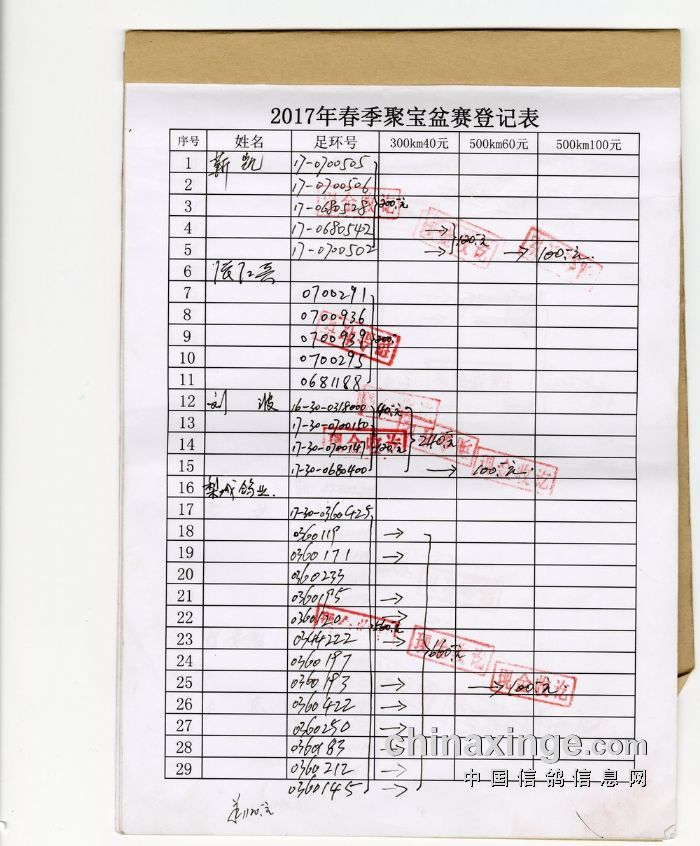 2017年春季聚宝盆赛登记表
序号 姓名 足环号 300km40元 500km60元 500km100元
1 靳凯 17-0700505
2 17-0700506
3 17-0680528 200元
4 17-0680542 → 120元
5 17-0700502 → → 100元
6
7 0700291
8 0700936
9 0700939 200
10 0700295
11 0681188
12 刘波 16-30-0318000 40元
13 17-30-0700150
14 17-30-0700147 120元 240元
15 17-30-0680400 → 100元
16 梨城鸽业
17 17-30-0360425
18 0360119 →
19 0360171 →
20 0360233
21 0360195 →
22 0360120 → 560元
23 0344222 → 660元
24 0360197
25 0360193 → → 100元
26 0360422 →
27 0360250 →
28 0360183
29 0360212 →
0360145 →
现金收讫
chinaxinge.com
中国信鸽信息网